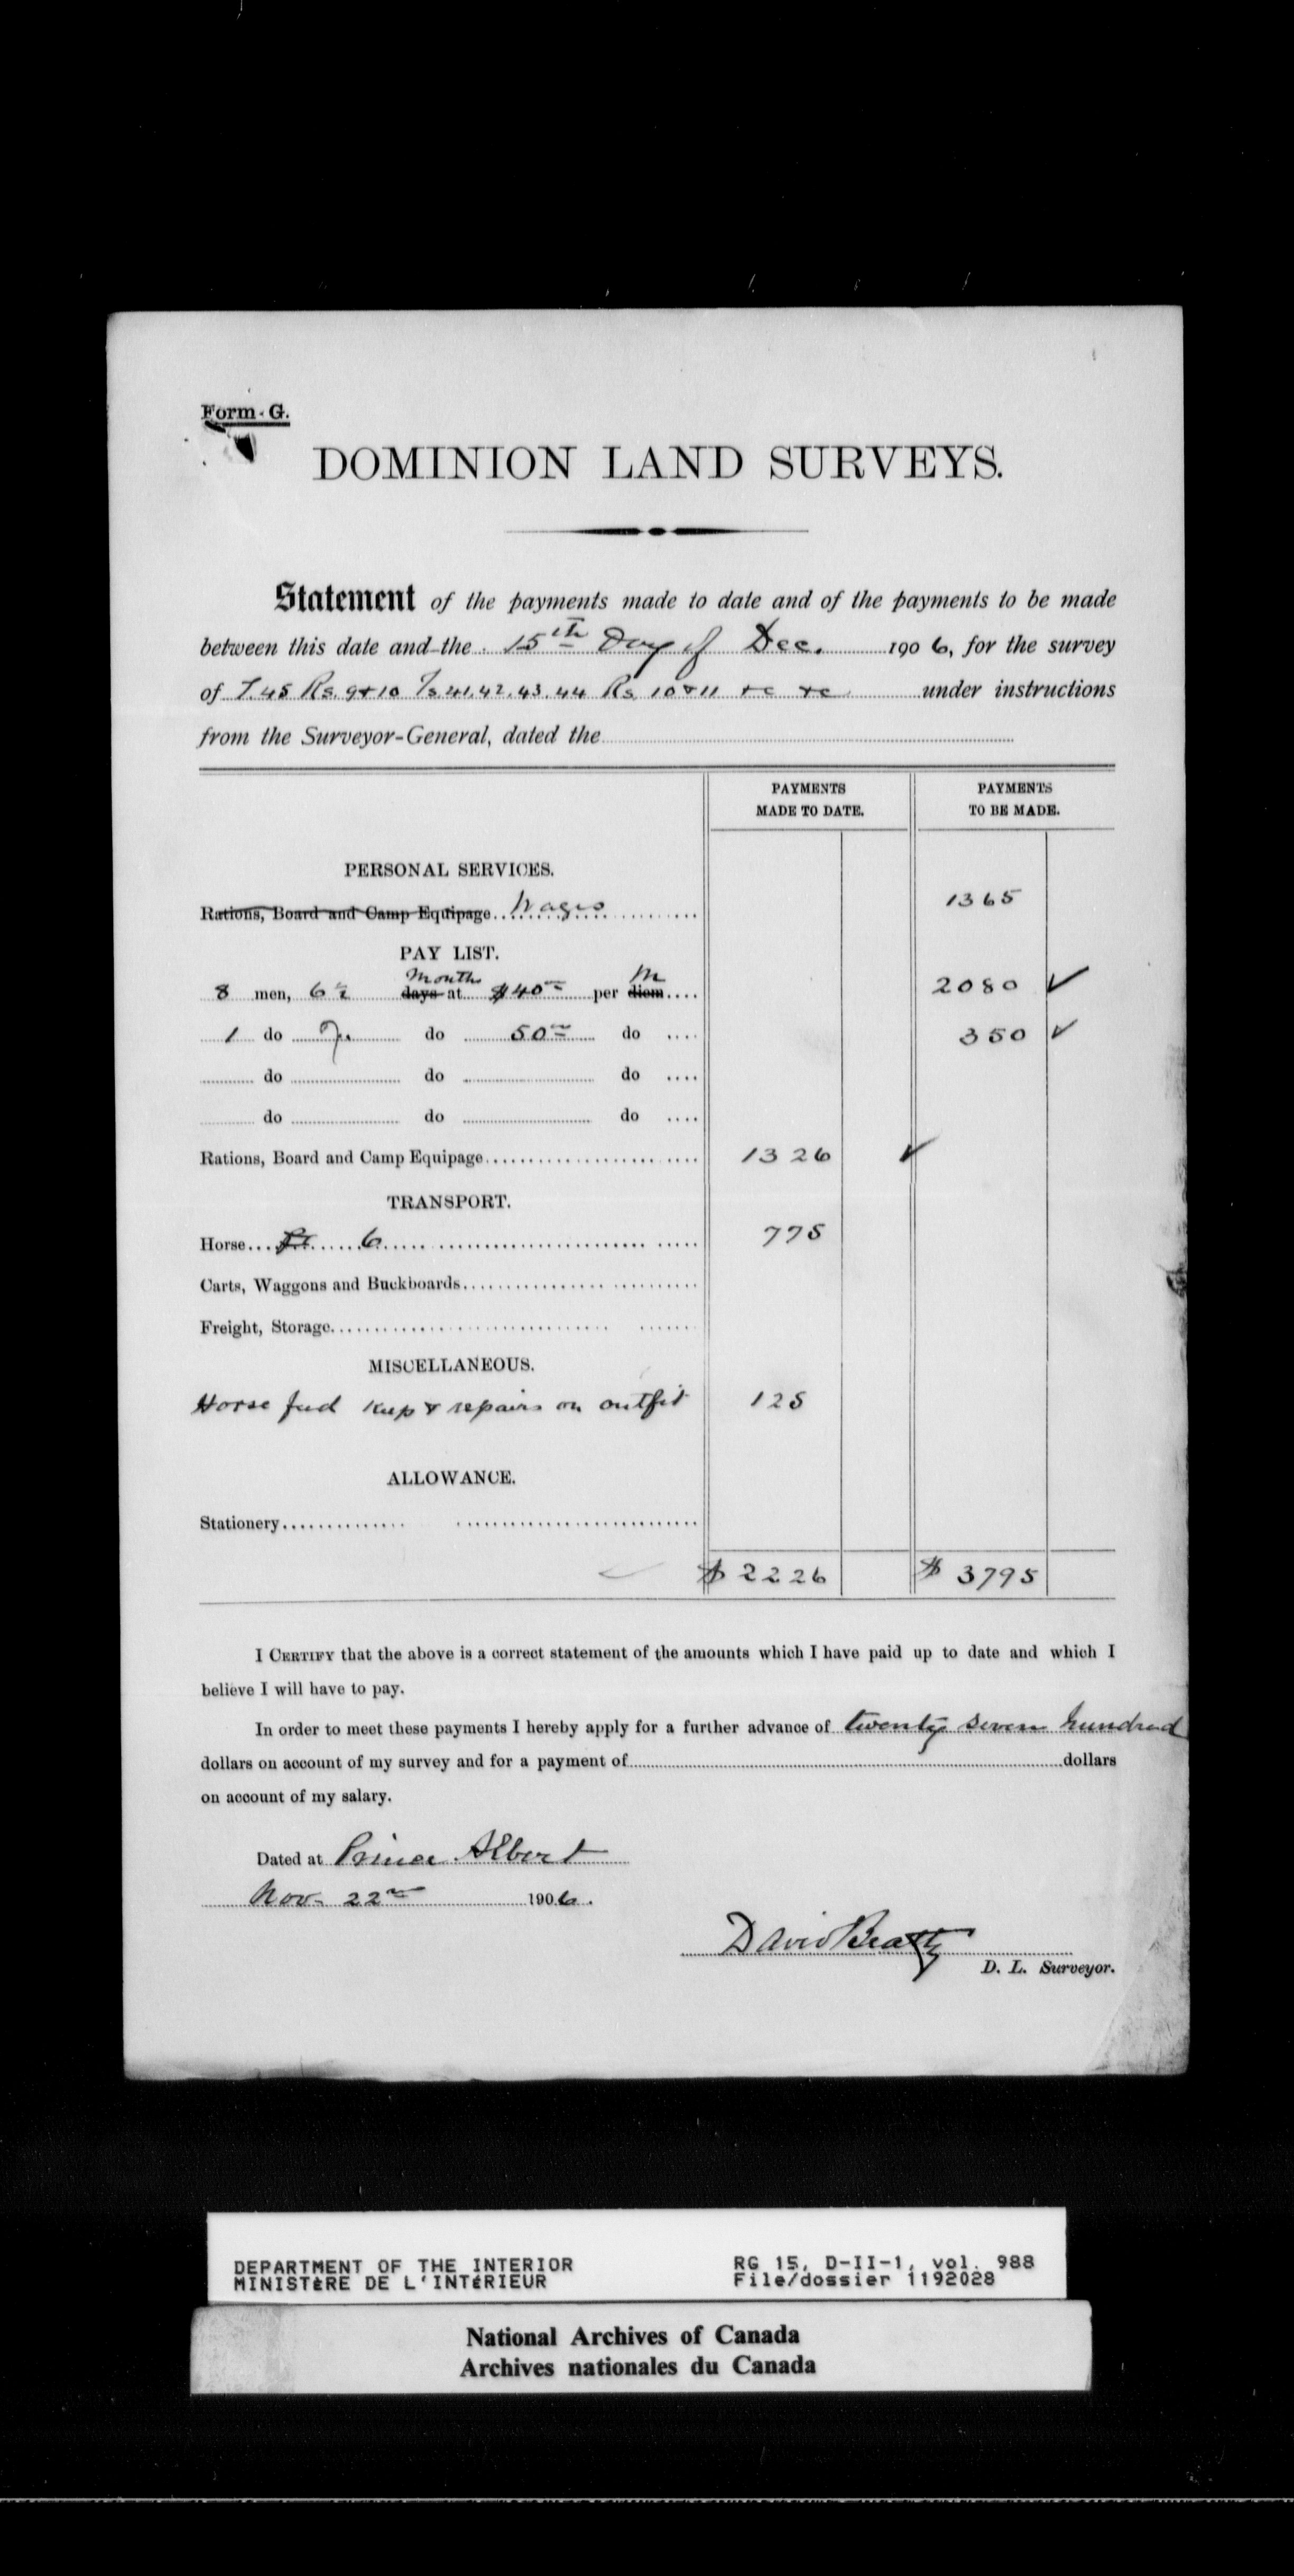 Form G.
DOMINION LAND SURVEYS.
Statement of the payments made to date and of the payments to be made
between this date and the 15th Day of Dec. 1906, for the survey
of T. 45 Rs. 9 & 10 Ts 41. 42. 43. 44 Rs 10 & 11 &c &c under instructions
from the Surveyor-General, dated the
PAYMENTS MADE TO DATE.
PAYMENTS TO BE MADE.
PERSONAL SERVICES.
Rations, Board and Camp Equipage Wages 1365
PAY LIST.
8 men, 6½ days months at $40 per diem M 2080 ✓
1 do 7 do 50 do 350 ✓
do do do
do do do
Rations, Board and Camp Equipage 1326 ✓
TRANSPORT.
Horse 6 775
Carts, Waggons and Buckboards
Freight, Storage
MISCELLANEOUS.
Horse feed keep & repairs on outfit 125
ALLOWANCE.
Stationery
$ 2226 $ 3795
I CERTIFY that the above is a correct statement of the amounts which I have paid up to date and which I
believe I will have to pay.
In order to meet these payments I hereby apply for a further advance of twenty seven hundred
dollars on account of my survey and for a payment of dollars
on account of my salary.
Dated at Prince Albert
Nov. 22nd 1906.
David Beatty
D. L. Surveyor.
DEPARTMENT OF THE INTERIOR RG 15, D-II-1, vol. 988
MINISTÈRE DE L'INTÉRIEUR File/dossier 1192028
National Archives of Canada
Archives nationales du Canada